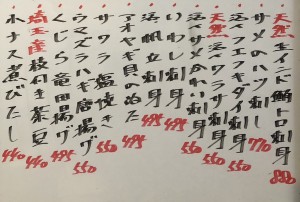 天然 生インド鮪トロ刺身 880
サメのハツ刺し 770
天然 活フエフキダイ刺身 550
刺身 550
いわし刺身 495
活帆立刺身 495
アオヤギ貝のぬた 495
サワラ塩焼き 550
ウマズラハギ唐揚げ 550
くじら竜田揚げ 495
埼玉産 枝付き茶豆 440
小ナス煮びたし 440